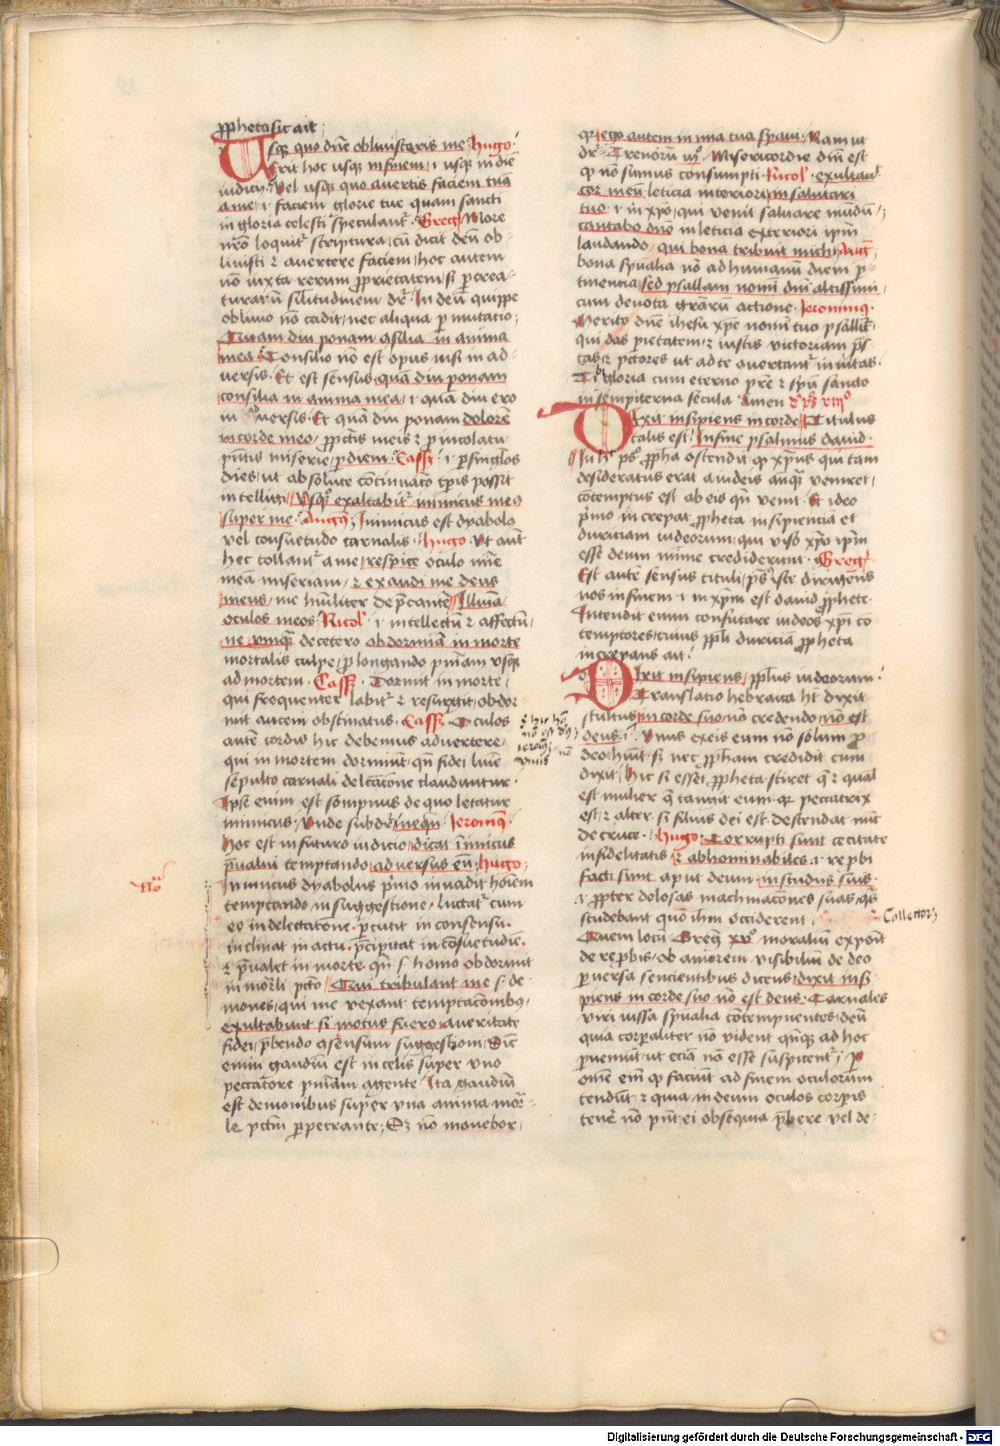 ꝓpheta sic ait
Usqꝫ quo dn̄e obliuisceris me Hugo
Erit hoc usqꝫ in finem ı usqꝫ in diē
iudicij vel usqꝫ quo auertis faciem tuā
a me ı faciem glorie tue quam sancti
in gloria celesti speculant᷑ Greg More
nr̄o loquit᷑ scriptura cū dicit deū ob-
liuisci ⁊ auertere faciem hoc autem
nō iuxta rerum ꝓprietatem sꝫ ꝑ crea-
turarū silitudinem dr̄ In deū quippe
obliuio nō cadit nec aliqua ꝑmutatio
Quam diu ponam ɔsilia in anima
mea Consilio nō est opus nisi in ad-
uersis Et est sensus quā diu ponam
consilia in anima mea ı quā diu ero
in aduersis Et quā diu ponam dolorē
in corde meo ꝓ pctīs meis ⁊ ꝓ incolatu
pn̄tis miserie ꝑ diem Cass ı ꝑ singlos
dies ut absolute cōtinuatō tp̄is possit
intelligi Usqꝫquo exaltabit᷑ inimicus meus
super me Augꝰ Inimicus est dyabolo
vel consuetudo carnalis Hugo Ut aūt
hec tollant᷑ a me respice oculo mīe
meā miseriam ⁊ exaudi me deus
meus me hūiliter dep̄cantē Illuīa
oculos meos Nicol ı intellectū ⁊ affectū
ne vnqꝫ decetero obdormiā in morte
mortalis culpe ꝓlongando pniam vsqꝫ
ad mortem Cass Dormit in morte
qui frequenter labit᷑ ⁊ resurgit obdor-
mit autem obstinatus Cass Oculos
autē cordis hic debemus aduertere
qui in mortem dormiūt qn̄ fidei lumē
sepulto carnali delc̄acione clauduntur
Ipse enim est sompnus de quo letatur
inimicus Unde subdit nequā Jeronimꝰ
hoc est in futuro iudicio dicat inimicus
p̄ualui temptando aduersus eū Hugo
Inimicus dyabolus p̄mo inuadit hoīem
temptando in suggestione luctat᷑ cum
eo in delectacione ꝑcutit in consensu
inclinat in actu p̄cipitat in cōsuetudiē
⁊ p̄ualet in morte qn̄ s homo obdormit
in mor̄li pctō Qui tribulant me s de-
mones qui me vexant temptacōnibus
exultabunt si motus fuero a ueritate
fidei p̄bendo ɔsensum suggestioni Sic
enim gaudiū est in celis super vno
peccatore pniam agente Ita gaudiū
est demonibus super vna anima mor-
le pctm̄ ꝑpetrante Sꝫ nō mouebor
qꝛ ego autem in mīa tua spaui Nam ut
dr̄ Trenorū iijº Misericordie dn̄i est
qꝫ nō sumus consumpti Nicol exultauit
cor meū leticia interiori in salutari
tuo ı in xp̄o qui venit saluare mūdū
cantabo dn̄o in leticia exteriori ip̄m
laudando qui bona tribuit michi Aug
bona sp̄ualia nō ad humanū diem ꝑ-
tinencia sed psallam nomī dn̄i altissimi
cum deuota gr̄arū actione Jeronimꝰ
Merito dn̄e ihesu xp̄e nomī tuo psallit᷑
qui das pietatem ⁊ iustis victoriam p̄s
tas ⁊ pctores ut ad te auertant᷑ inuitas
Tibi gloria cum eterno pr̄e ⁊ sp̄u sancto
in sempiterna secula Amen ps xiijº
Dixit insipiens in corde Titulus
talis est In finē psalmus dauid
In hº psº ꝓpha ostendit qꝫ xp̄us qui tam
desideratus erat a iudeis anqꝫ veniret
cōtemptus est ab eis qn̄ venit Et ideo
p̄mo increpat ꝓpheta insipienciā et
duriciam iudeorum qui viso xp̄o ip̄m
esse deum minime crediderunt Greg
Est autē sensus tituli ps iste dirigens
nos in finem ı in xp̄m est dauid ꝓphete
Intendit enim confutare iudeos xp̄i cō
temptores cuius ppli duriciā ꝓpheta
increpans ait
Dixit insipiens pplus iudeorum
Translatio hebraica ht dixit
stultus in corde suo nō credendo nō est
deus ı Unus ex eis eum nō solum ꝓ
deo hūit sꝫ nec ꝓpham credidit cum
dixit hic si esset ꝓpheta sciret q̄ ⁊ qual
est mulier q̄ tangit eum qꝛ peccatrix
est ⁊ alter si filius dei est descendat nūc
de cruce Hugo Corrupti sunt cecitate
infidelitatis ⁊ abhominabiles ı reꝓbi
facti sunt aput deum in studiis suis
ı ꝓpter dolosas machinacōnes suas qn̄
studebant quō ihm̄ occiderent
Quem locū Greg xvº moraliū exponit
de reꝓbis ob amorem visibiliū de deo
ꝑuersa sencientibus dicens dixit insi-
piens in corde suo nō est deus Carnales
viri iussa sp̄ualia cōtempnentes deū
quia corporaliter nō vident qn̄qꝫ ad hoc
ꝑueniūt ut eciā nō esse suspicent᷑
Omē em̄ qꝫ faciūt ad finem oculorum
tendūt ⁊ quia in deum oculos corꝑis
tenē nō pn̄t ei obsequia p̄bere vel de-
Collectoris